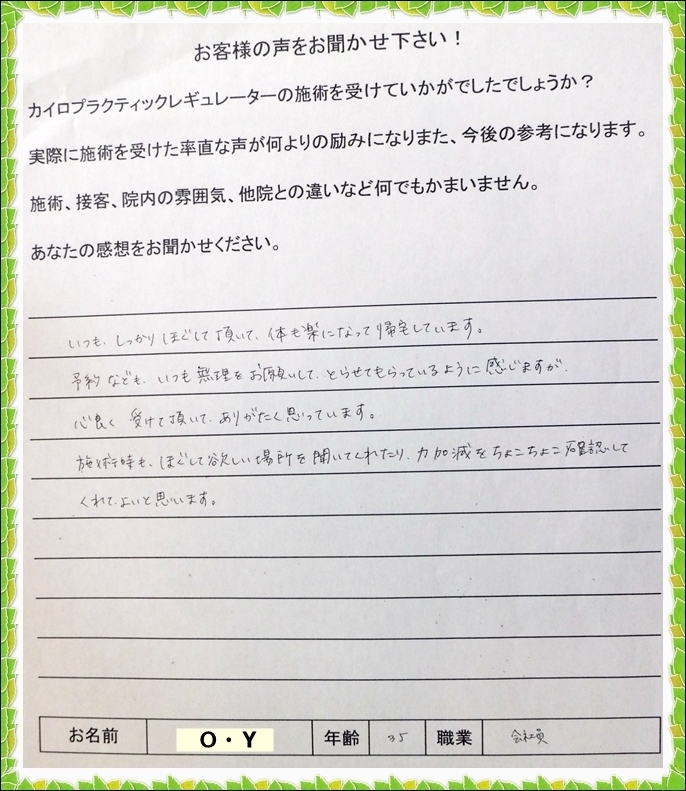 お客様の声をお聞かせ下さい！
カイロプラクティックレギュレーターの施術を受けていかがでしたでしょうか？
実際に施術を受けた率直な声が何よりの励みになりまた、今後の参考になります。
施術、接客、院内の雰囲気、他院との違いなど何でもかまいません。
あなたの感想をお聞かせください。
いつも、しっかりほぐして頂いて、体も楽になって帰宅しています。
予約なども、いつも無理をお願いして、とらせてもらっているように感じますが、
心良く受けて頂いて、ありがたく思っています。
施術時も、ほぐして欲しい場所を聞いてくれたり、力加減をちょこちょこ確認して
くれて、よいと思います。
お名前 O・Y 年齢 35 職業 会社員